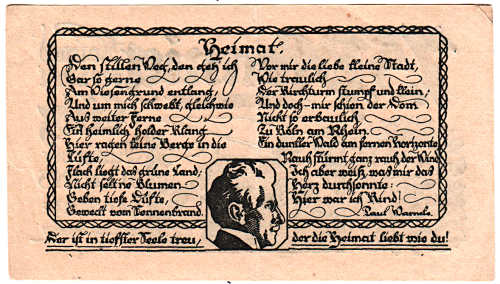 Heimat.
Den stillen Weg, den geh ich
Gar so gerne
Am Wiesengrund entlang,
Und um mich schwebt, gleichwie
Aus weiter Ferne
Ein heimlich holder Klang
Hier ragen keine Berge in die
Lüfte,
Flach liegt das grüne Land;
Nicht seltne Blumen
Geben tiefe Düfte,
Geweckt vom Sonnenbrand.
Vor mir die liebe kleine Stadt,
Wie traulich
Der Kirchturm stumpf und klein;
Und doch mir schien der Dom
Nicht so erbaulich
Zu Köln am Rhein.
Ein dunkler Wald am fernen Horizonte,
Rauh stürmt ganz rauh der Wind
Ich aber weiß, was mir das
Herz durchsonnte:
Hier war ich Kind!
Paul Warncke.
Der ist in tiefster Seele treu,
der die Heimat liebt wie du!